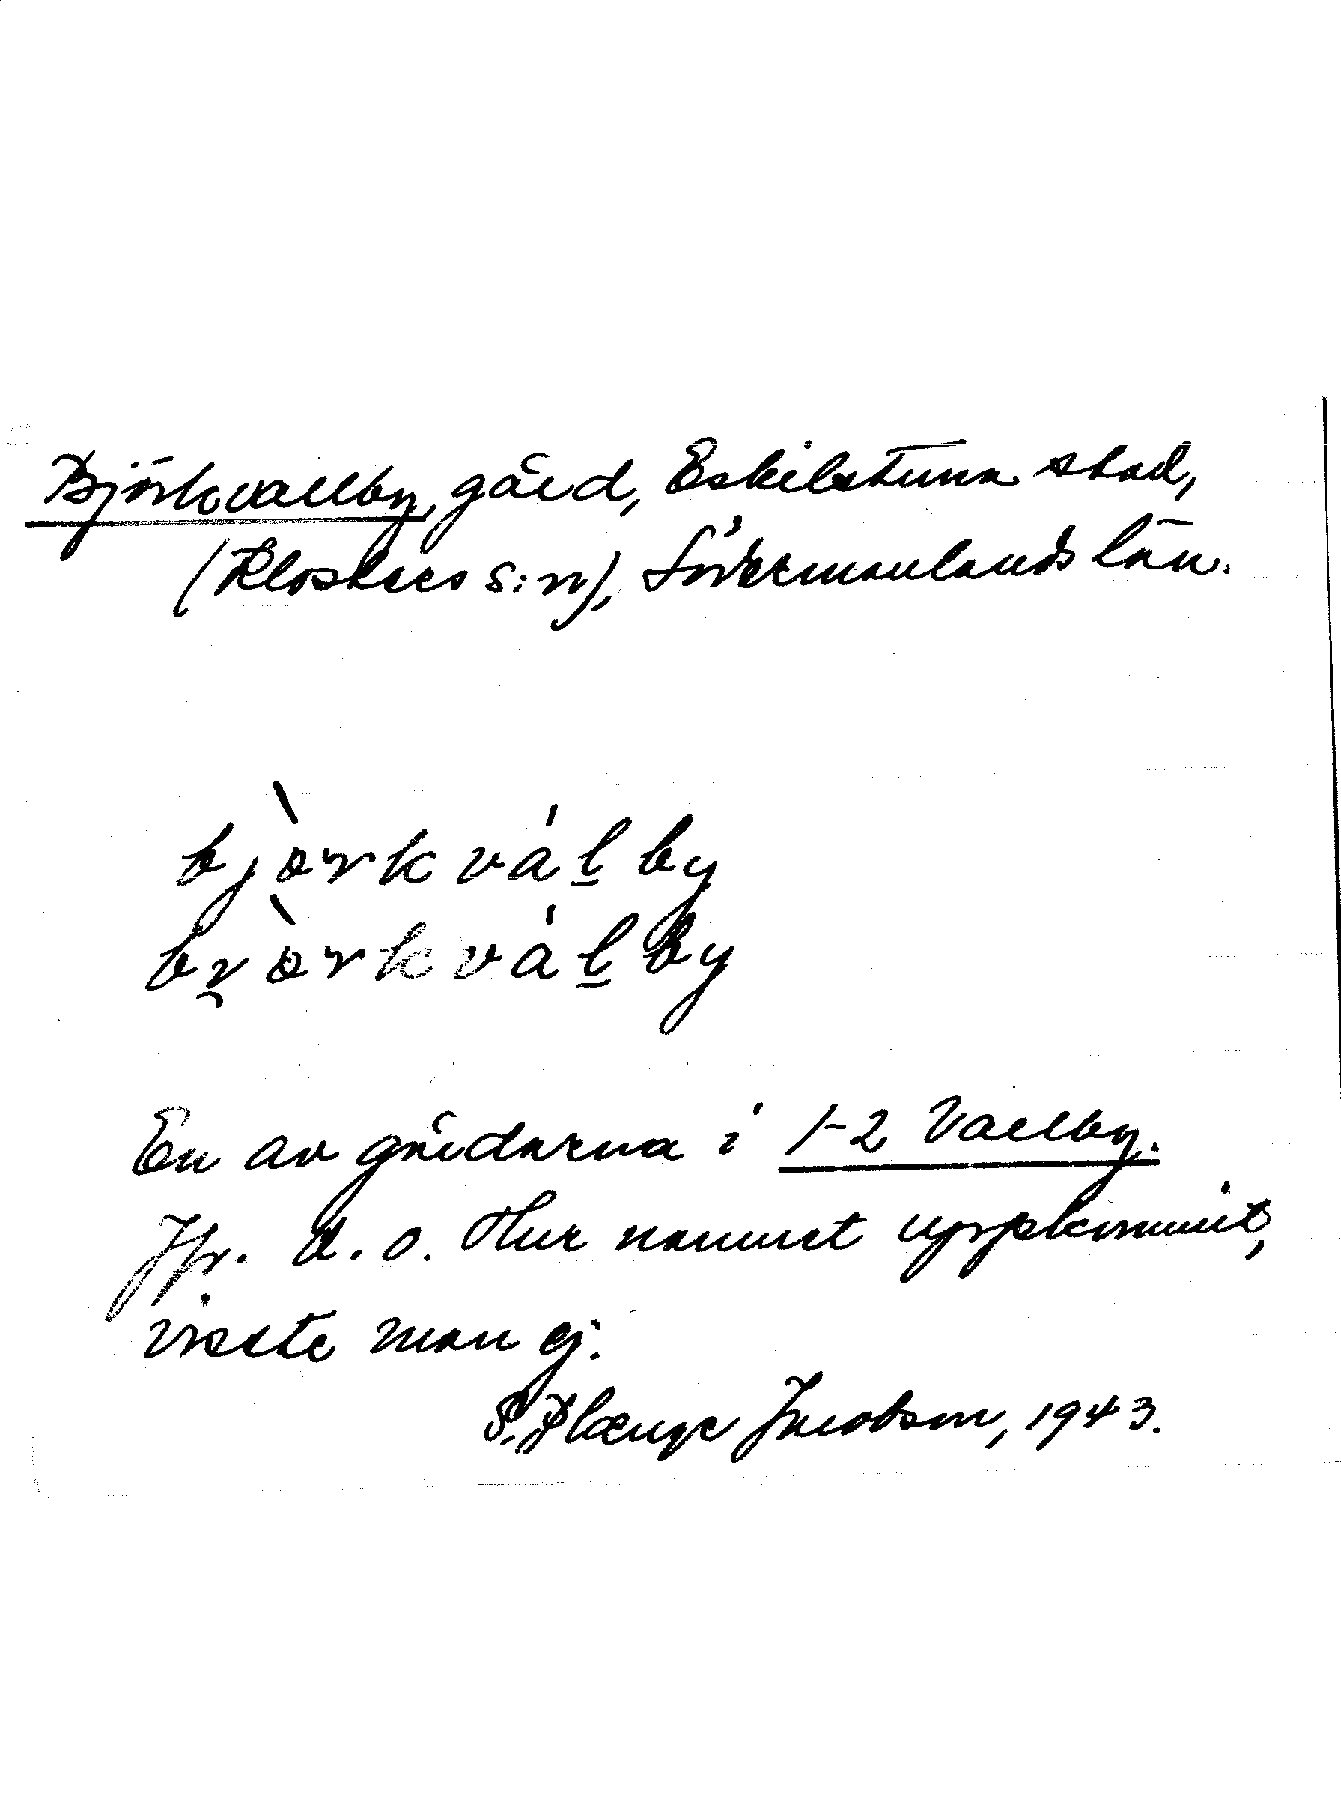 Björkvallby, gård, Eskilstuna stad,
(Klosters s:n), Södermanlands län.
bjòrkválby
bròrkválby
En av gårdarna i 1-2 Vallby.
Jfr. d. o. Hur namnet uppkommit,
visste man ej.
S. Plænge Jacobson, 1943.